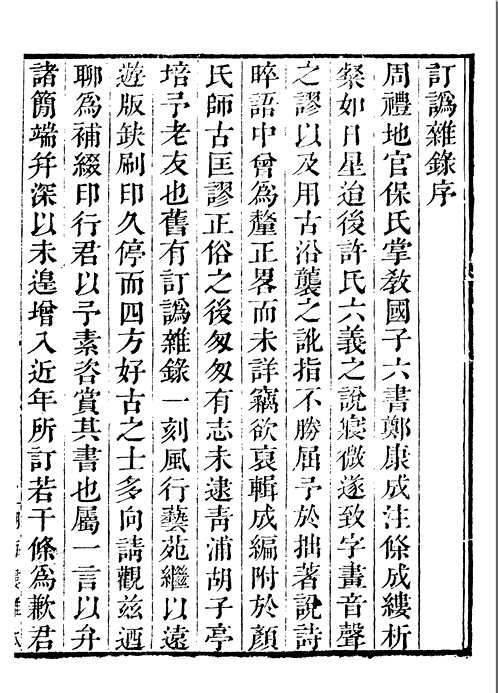 訂譌雜錄序
周禮地官保氏掌敎國子六書鄭康成注條成縷析
粲如日星迨後許氏六義之說寖微遂致字畫音聲
之謬以及用古沿襲之訛指不勝屈予於拙著說詩
晬語中曾爲釐正畧而未詳竊欲裒輯成編附於顏
氏師古匡謬正俗之後匆匆有志未逮靑浦胡子亭
培予老友也舊有訂譌雜錄一刻風行藝苑繼以遠
遊版缺刷印久停而四方好古之士多向請觀兹廼
聊爲補綴印行君以予素咨賞其書也屬一言以弁
諸簡端幷深以未遑增入近年所訂若干條爲歉君